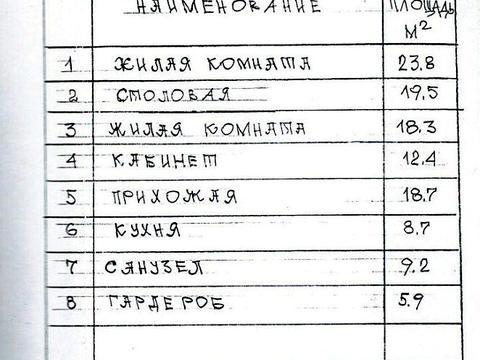 НАИМЕНОВАНИЕ ПЛОЩАДЬ М²
1 ЖИЛАЯ КОМНАТА 23.8
2 СТОЛОВАЯ 19,5
3 ЖИЛАЯ КОМНАТА 18.3
4 КАБИНЕТ 12.4
5 ПРИХОЖАЯ 18.7
6 КУХНЯ 8.7
7 САНУЗЕЛ 9.2
8 ГАРДЕРОБ 5.9